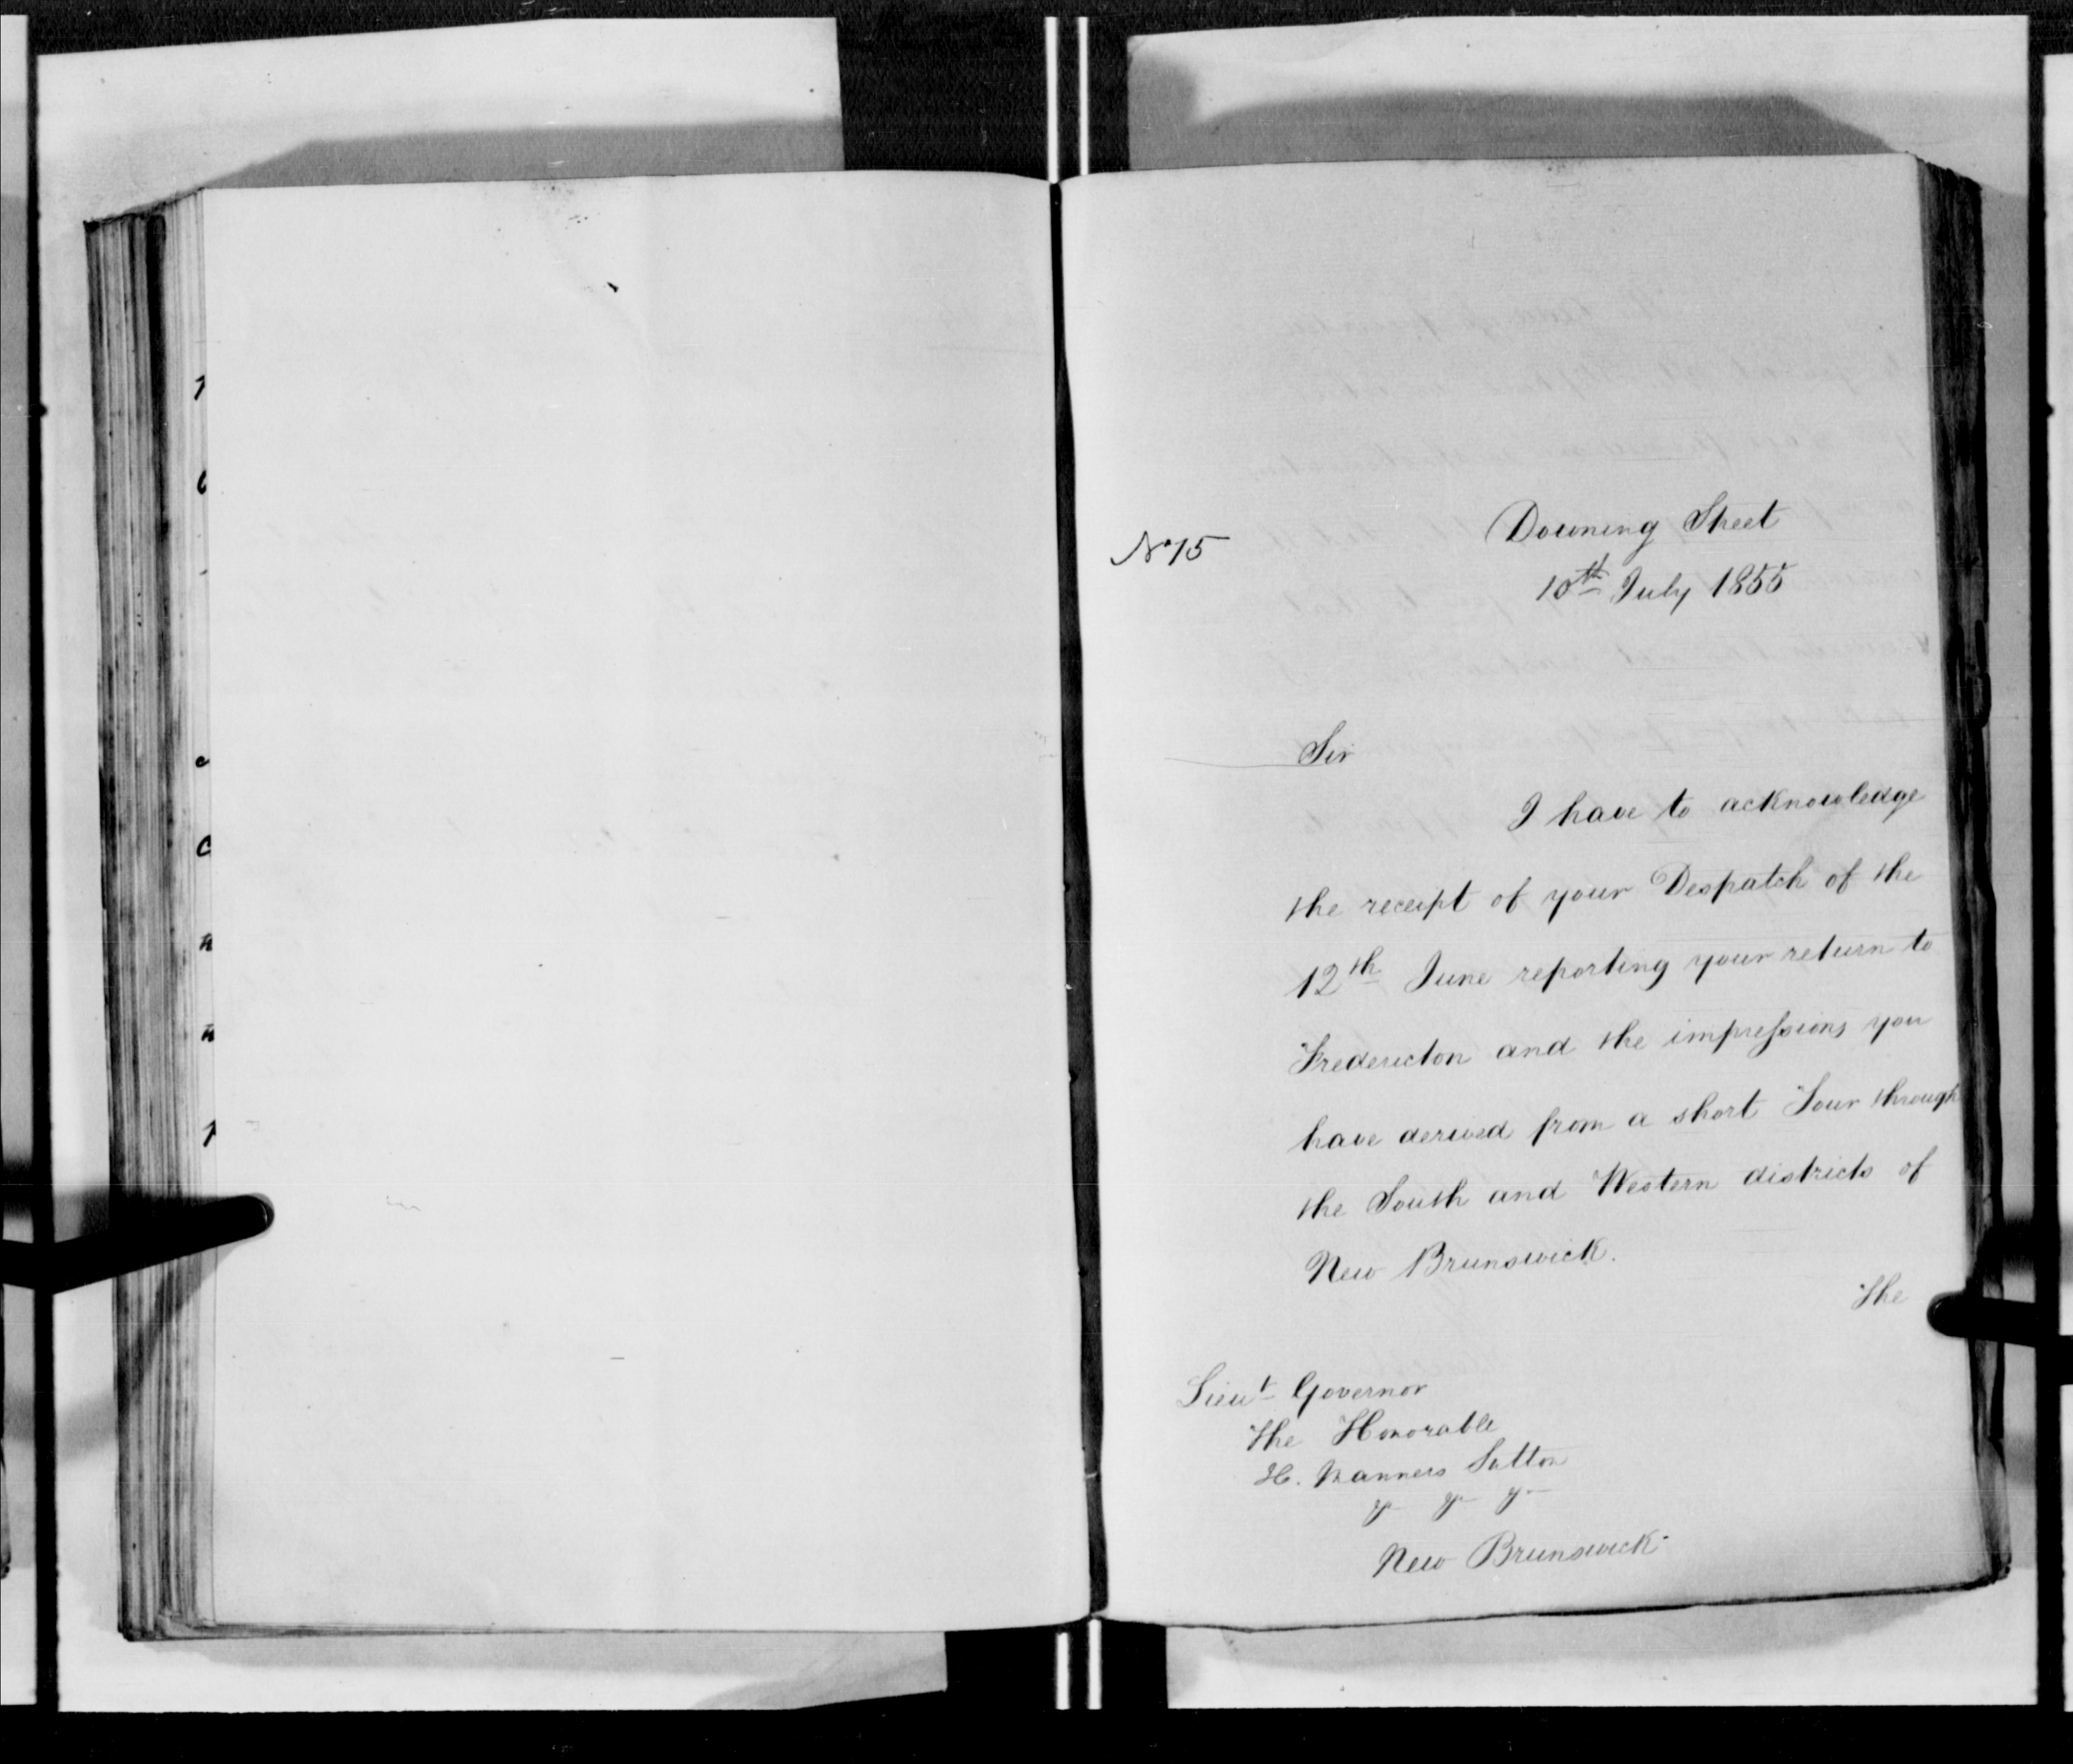 No 15
Downing Street
10th July 1855
Sir
I have to acknowledge
the receipt of your Despatch of the
12th June reporting your return to
Fredericton and the impressions you
have derived from a short Tour through
the South and Western districts of
New Brunswick.
The
Lieut Governor
The Honorable
H. Manners Sutton
New Brunswick